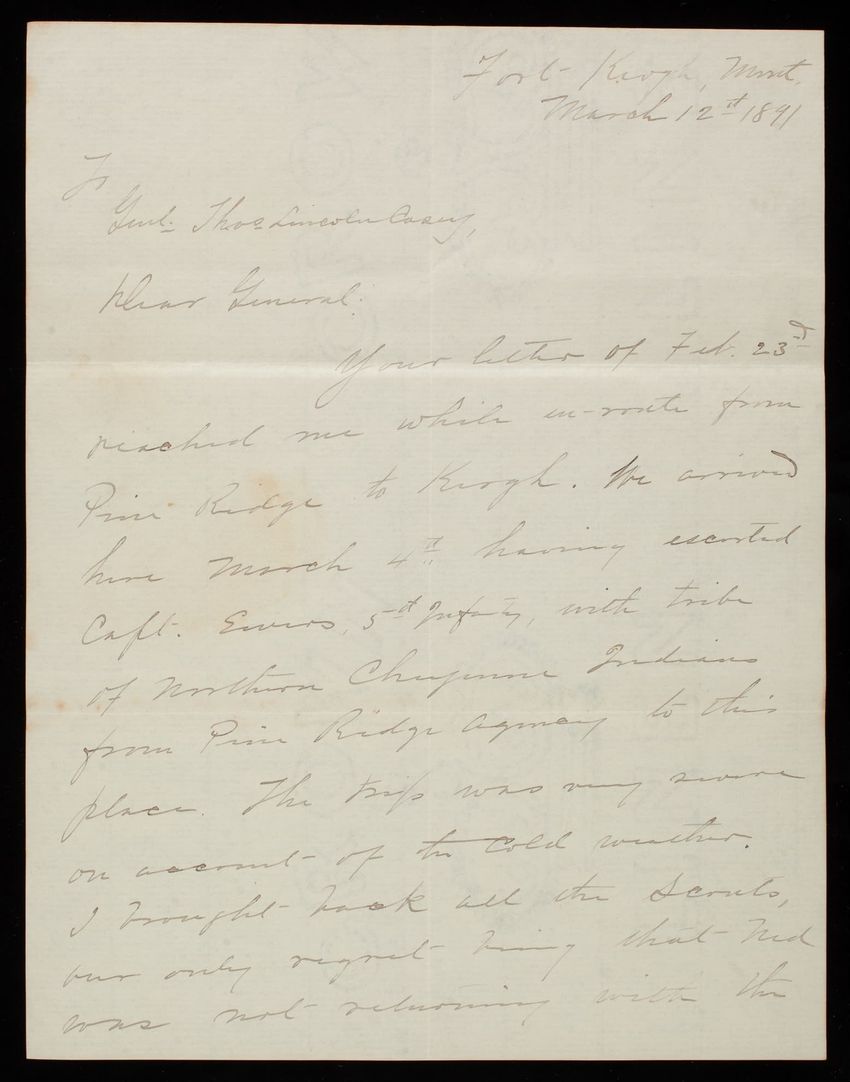 Fort Keogh, Mont.
March 12th 1891
To
Genl. Thos Lincoln Casey,
Dear General:
Your letter of Feb. 23d
reached me while en-route from
Pine Ridge to Keogh. We arrived
here March 4th having escorted
Capt. Ewers, 5th Infty, with tribe
of Northern Cheyenne Indians
from Pine Ridge Agency to this
place. The trip was very severe
on account of the cold weather.
I brought back all the Scouts,
our only regret being that Ned
was not returning with the